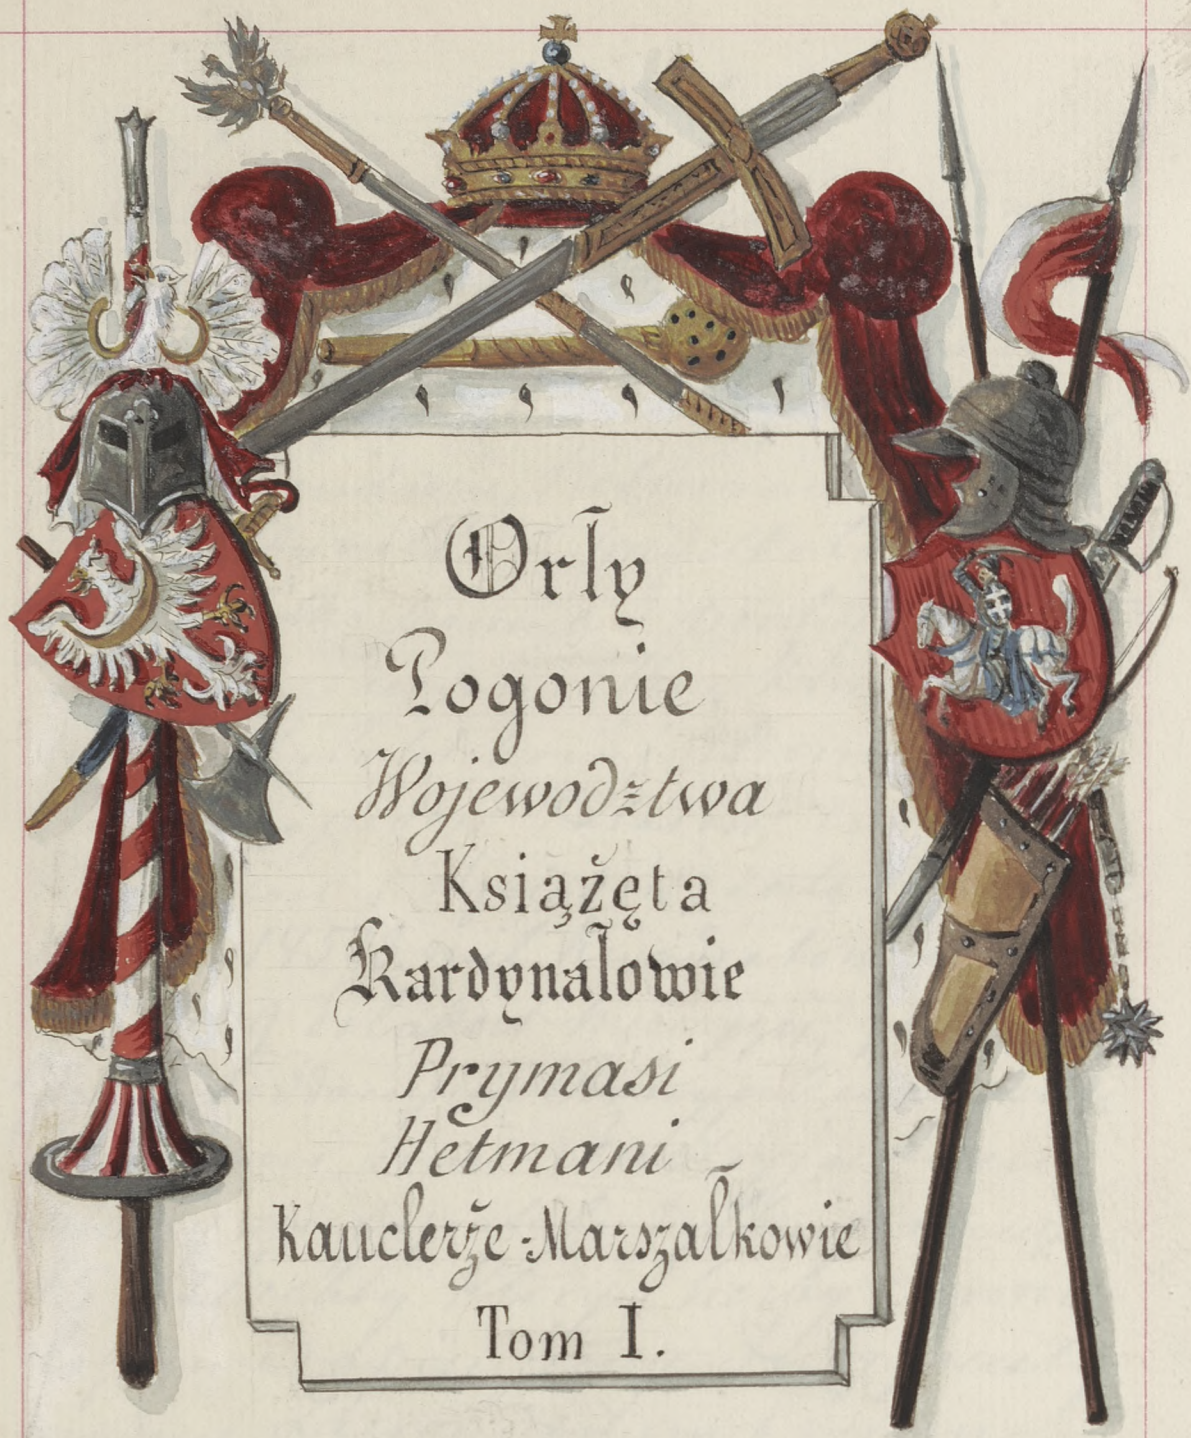 Orły
Pogonie
Wojewodztwa
Książęta
Kardynałowie
Prymasi
Hetmani
Kanclerże-Marszałkowie
Tom I.